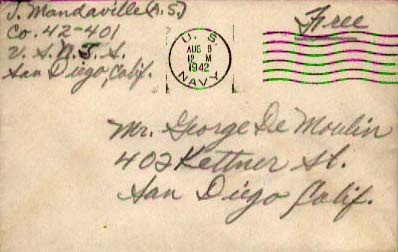 J. Mandaville (A.S.)
Co. 42-401
U.S.N.T.S.
San Diego, Calif.
U. S.
AUG 8
12 M
1942
NAVY
Free
Mr. George De Moulin
402 Kettner St.
San Diego Calif.